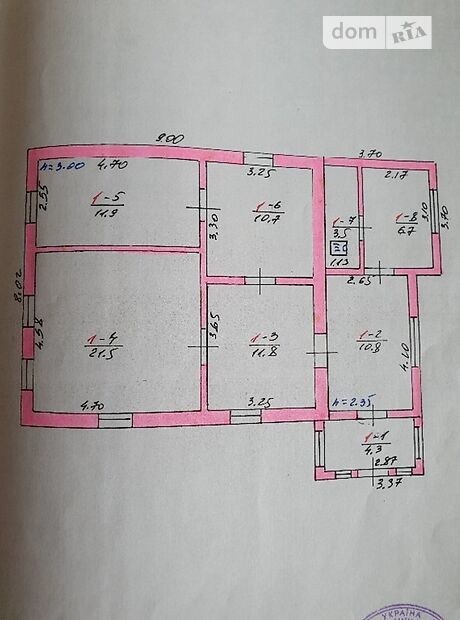 dom RIA
9.00
3.70
h=3.00 4.70
3.25
2.17
2.55
1-5
11.9
3.30
1-6
10.7
1-7
3.5
1-8
6.7
3.10
3.70
1.13
2.65
8.02
4.58
1-4
21.5
3.65
1-3
11.8
1-2
10.8
4.20
4.70
3.25
h=2.35
1-1
4.3
2.87
3.37
УКРАЇНА